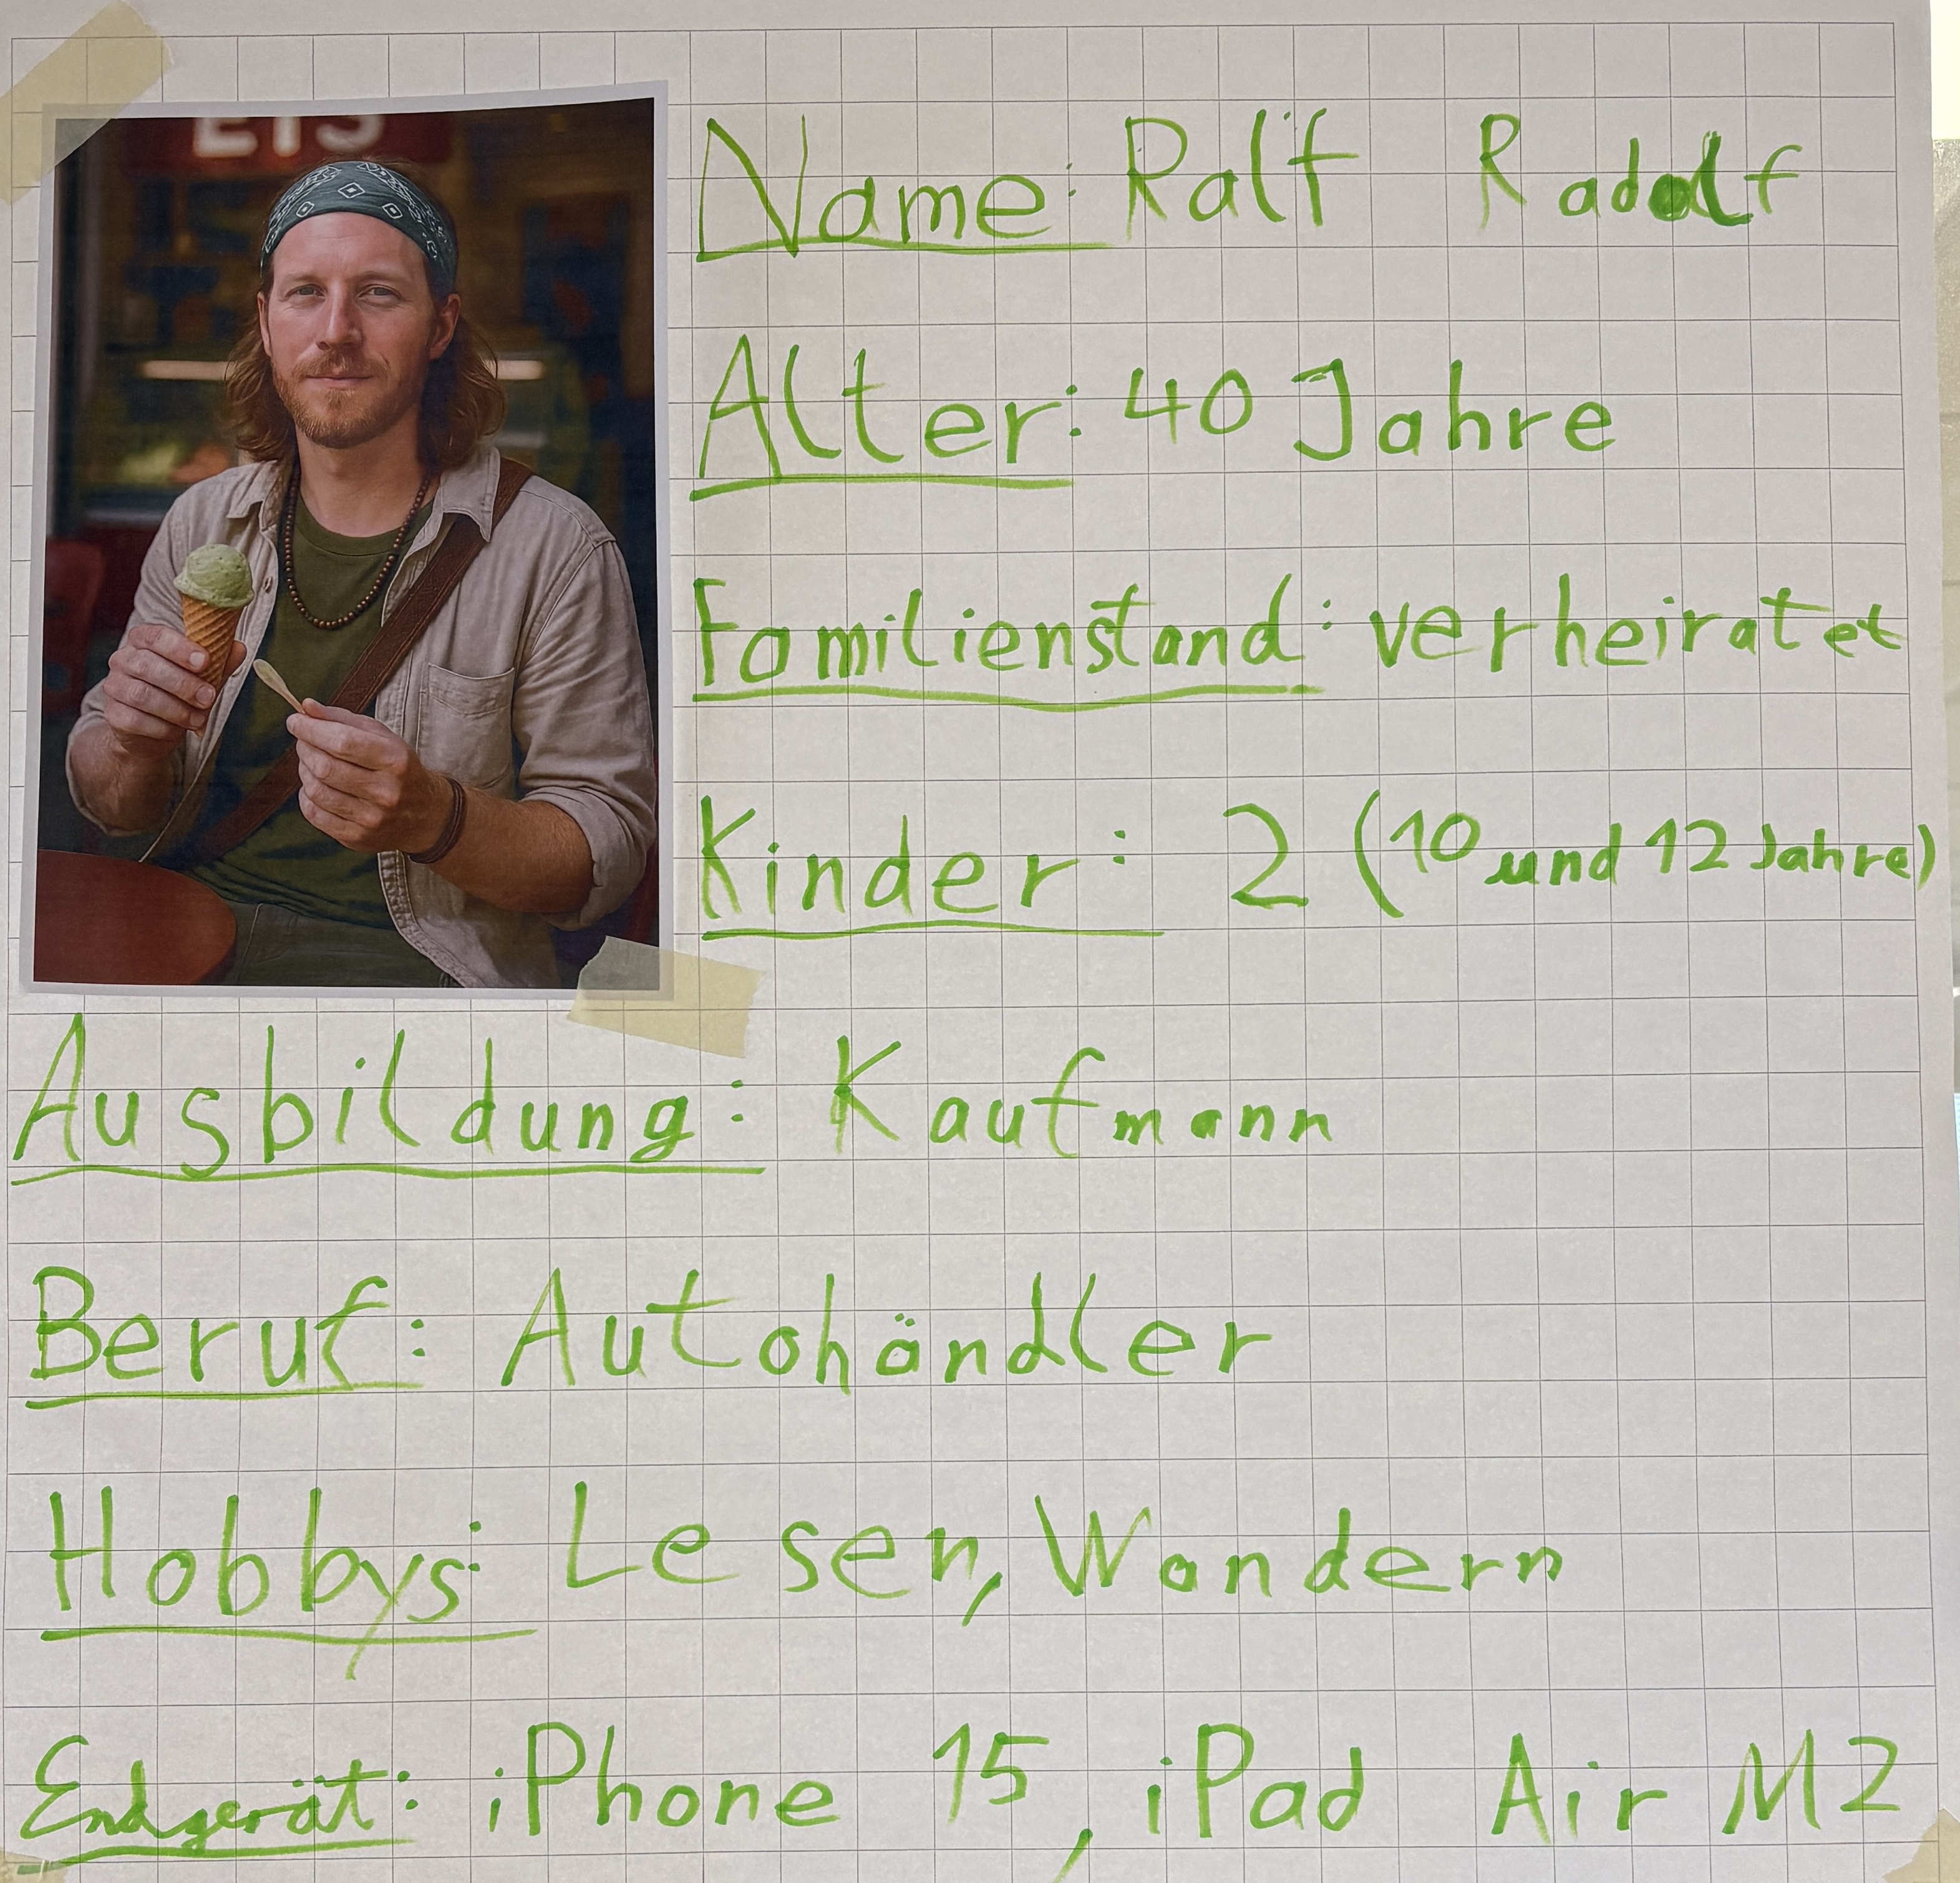 EIS
Name: Ralf Radolf
Alter: 40 Jahre
Familienstand: verheiratet
Kinder: 2 (10 und 12 Jahre)
Ausbildung: Kaufmann
Beruf: Autohändler
Hobbys: Lesen, Wandern
Endgerät: iPhone 15, iPad Air M2